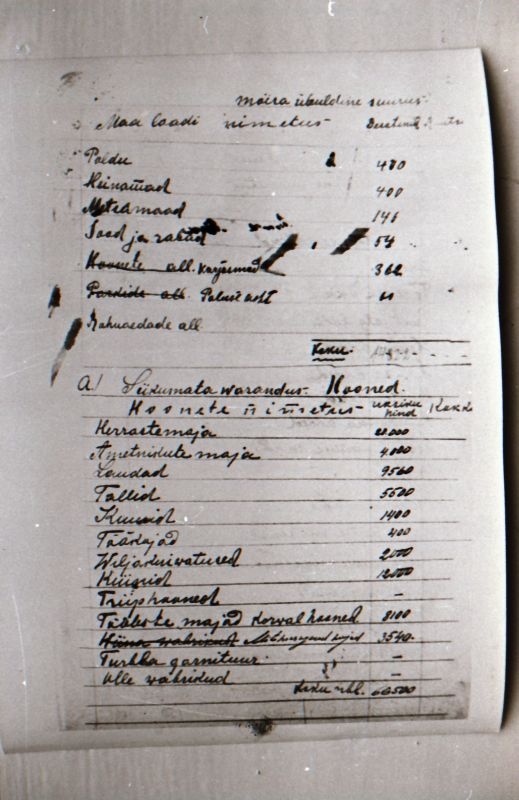 Mõisa üleüldine suurus.
Maa laadi nimetus
Põldu 470
Heinamad 400
Metsamaad 146
Sood ja rabad 54
Hoonete all. karjamad 362
Pardide all
Rahnaedade all
Kokku
A/ Liikumata warandus. Hooned.
Hoonete nimetus üksiku hind Kokku
Herrastemaja 20.000
Ametnikute maja 4.000
Laudad 9560
Tallid 5500
Kuurid 1400
Töökojad 400
Wiljakuiwatused 2000
Küünid 12000
Triiphooned –
Tööliste majad kõrwal hooned 8100
Wiina wabrikud 3540
Turbba garnituur –
Õlle wabrikud –
Kokku rbl. 66500